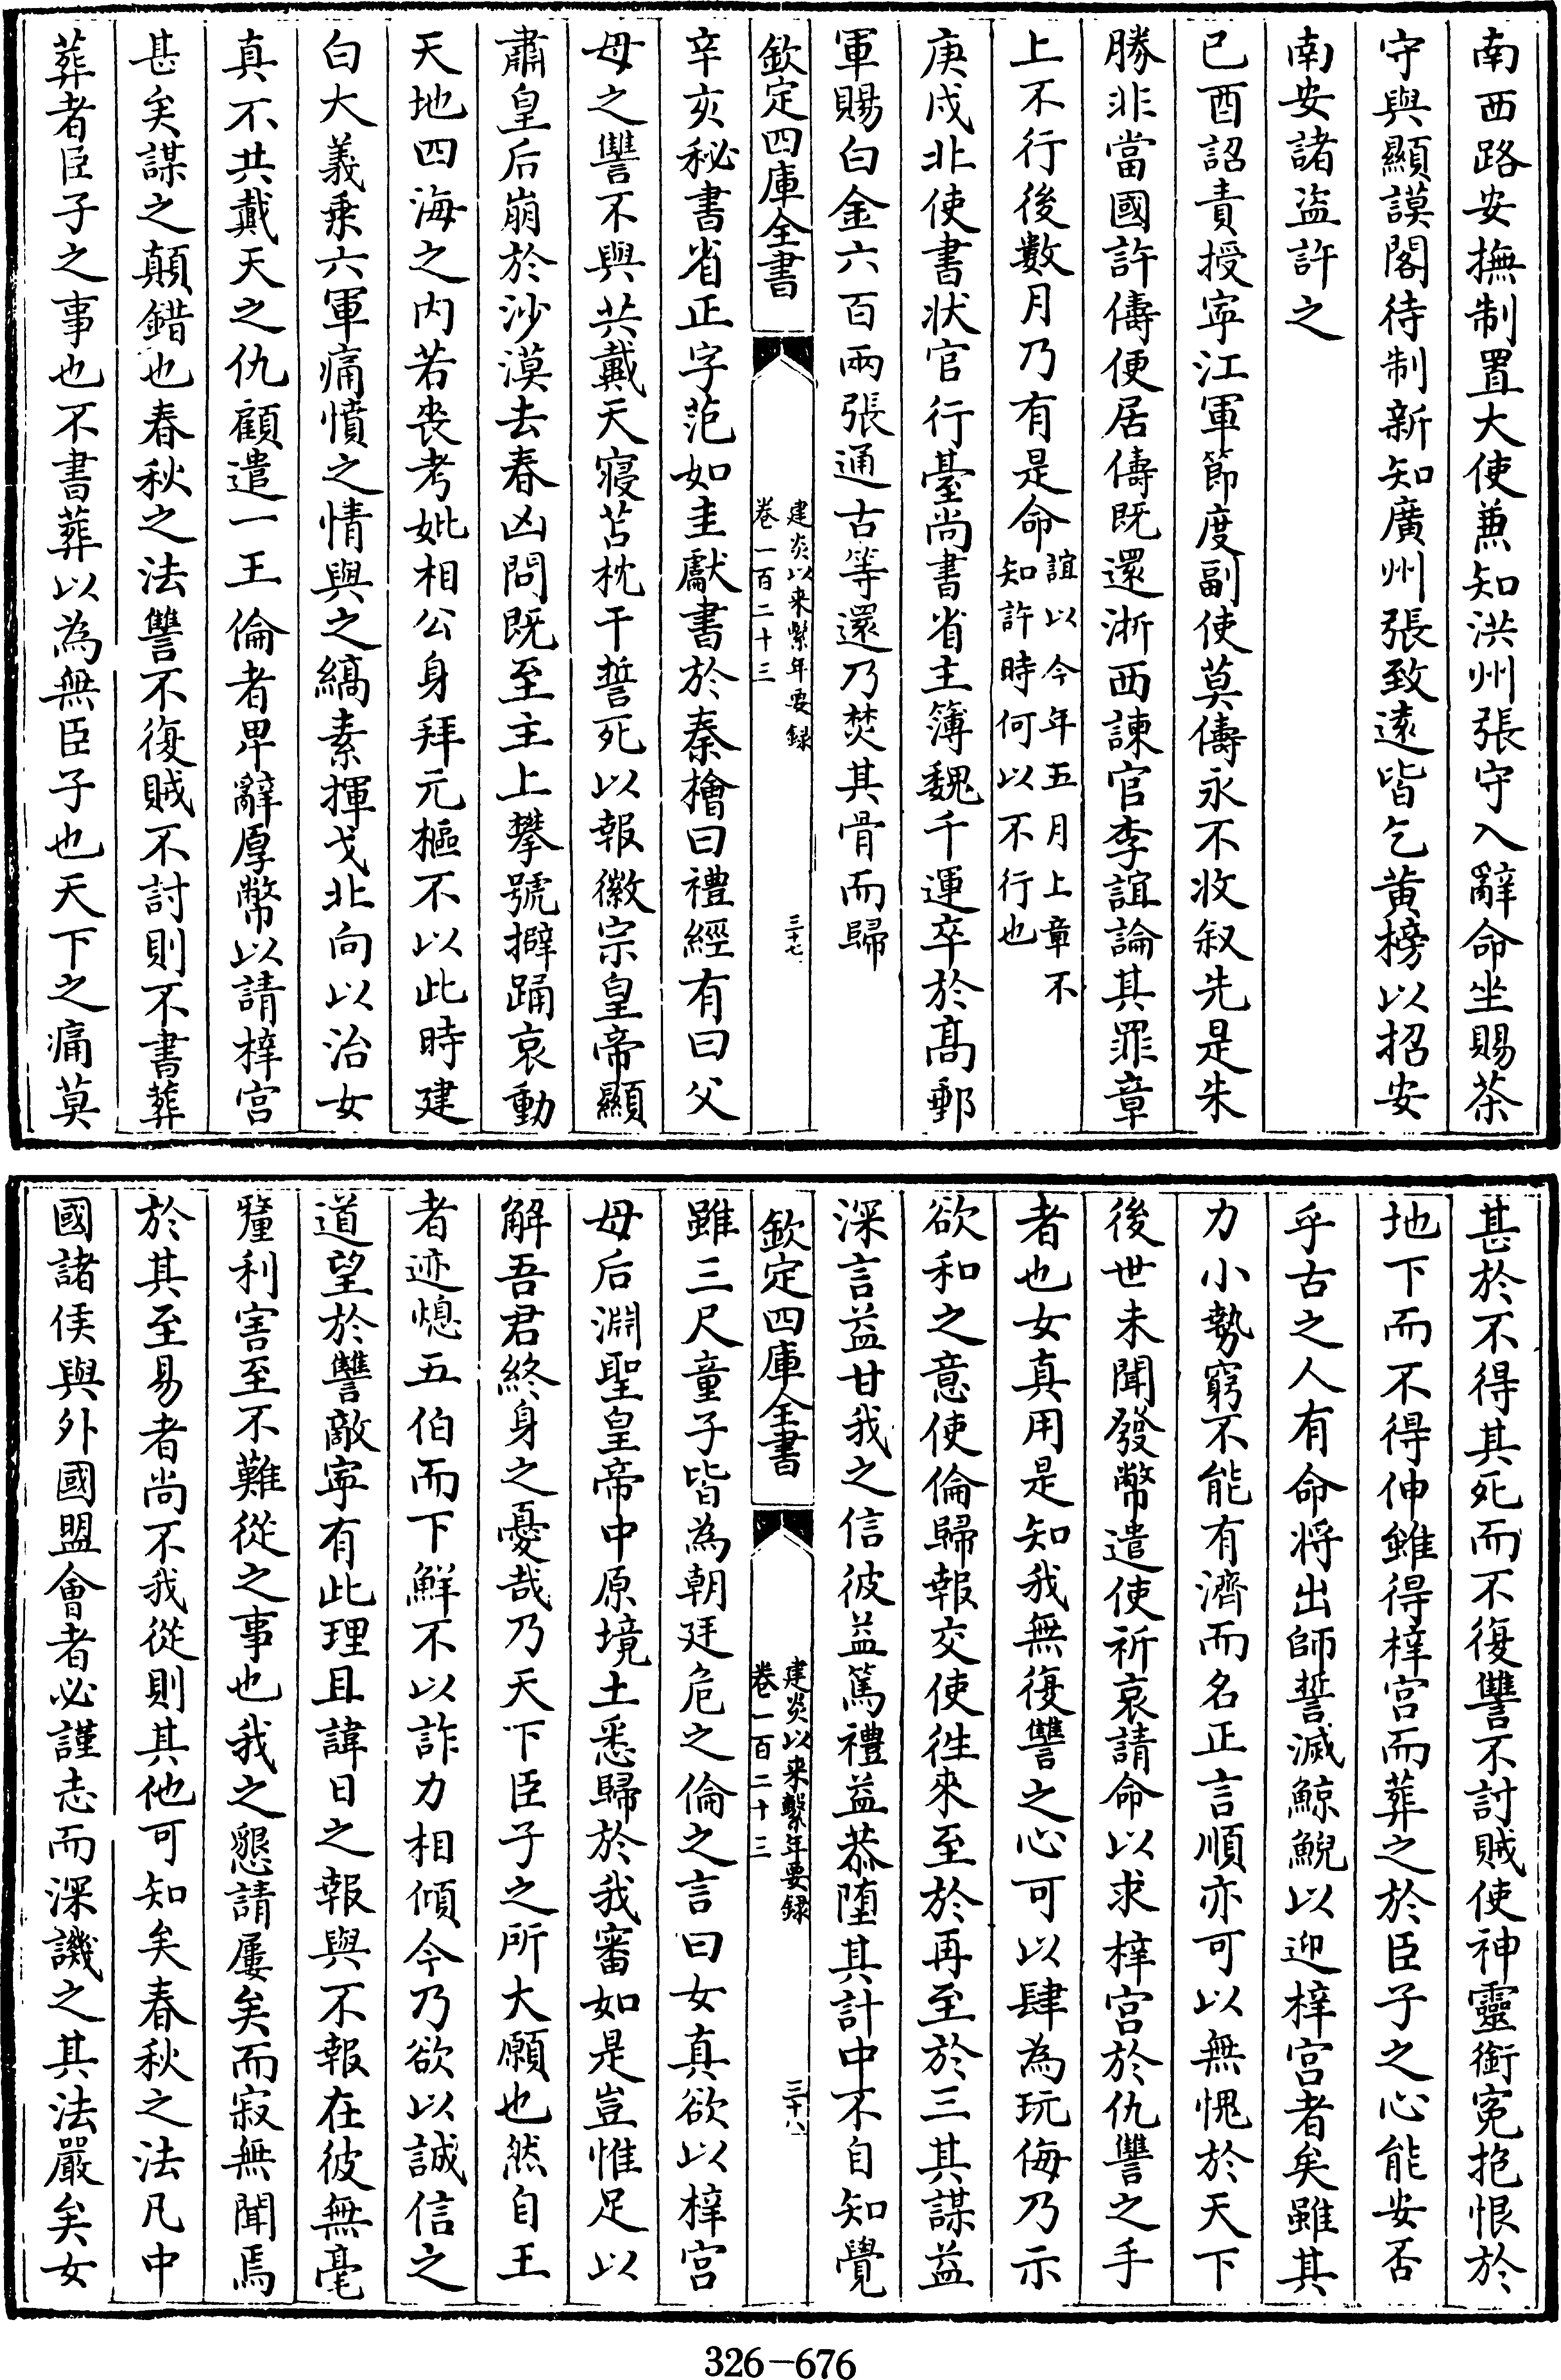 南西路安撫制置大使兼知洪州張守入辭命坐賜茶
守與顯謨閣待制新知廣州張致遠皆乞黄榜以招安
南安諸盜許之
已酉詔責授寜江軍節度副使莫儔永不收叙先是朱
勝非當國許儔便居儔既還浙西諫官李誼論其罪章
上不行後數月乃有是命誼以今年五月上章不
知許時何以不行也
庚戍北使書狀官行臺尚書省主簿魏千運卒於髙郵
軍賜白金六百兩張通古等還乃焚其骨而歸
欽定四庫全書
建炎以來繫年要録
卷一百二十三
三十七
辛亥秘書省正字范如圭獻書於秦檜曰禮經有曰父
母之讐不與共戴天寢苫枕干誓死以報徽宗皇帝顯
肅皇后崩於沙漠去春凶問既至主上攀號擗踊哀動
天地四海之内若喪考妣相公身拜元樞不以此時建
白大義乘六軍痛憤之情與之縞素揮戈北向以治女
真不共戴天之仇顧遣一王倫者卑辭厚幣以請梓宫
甚矣謀之顛錯也春秋之法讐不復賊不討則不書葬
葬者臣子之事也不書葬以為無臣子也天下之痛莫
甚於不得其死而不復讐不討賊使神靈銜寃抱恨於
地下而不得伸雖得梓宫而葬之於臣子之心能安否
乎古之人有命将出師誓滅鯨鯢以迎梓宫者矣雖其
力小勢窮不能有濟而名正言順亦可以無愧於天下
後世未聞發幣遣使祈哀請命以求梓宫於仇讐之手
者也女真用是知我無復讐之心可以肆為玩侮乃示
欲和之意使倫歸報交使徃來至於再至於三其謀益
深言益甘我之信彼益篤禮益恭墮其計中不自知覺
欽定四庫全書
建炎以來繫年要録
卷一百二十三
三十八
雖三尺童子皆為朝廷危之倫之言曰女真欲以梓宫
母后淵聖皇帝中原境土悉歸於我審如是豈惟足以
解吾君終身之憂哉乃天下臣子之所大願也然自王
者迹熄五伯而下鮮不以詐力相傾今乃欲以誠信之
道望於讐敵寜有此理且諱日之報與不報在彼無毫
釐利害至不難從之事也我之懇請屢矣而寂無聞焉
於其至易者尚不我從則其他可知矣春秋之法凡中
國諸侯與外國盟會者必謹志而深譏之其法嚴矣女
326-676